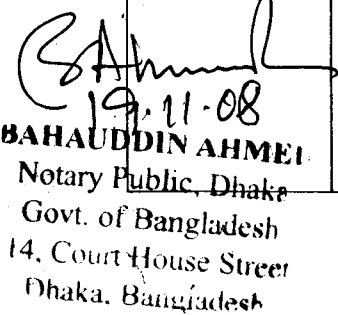 SAhmed
19.11.08
BAHAUDDIN AHMED
Notary Public, Dhaka
Govt. of Bangladesh
14, Court House Street
Dhaka, Bangladesh